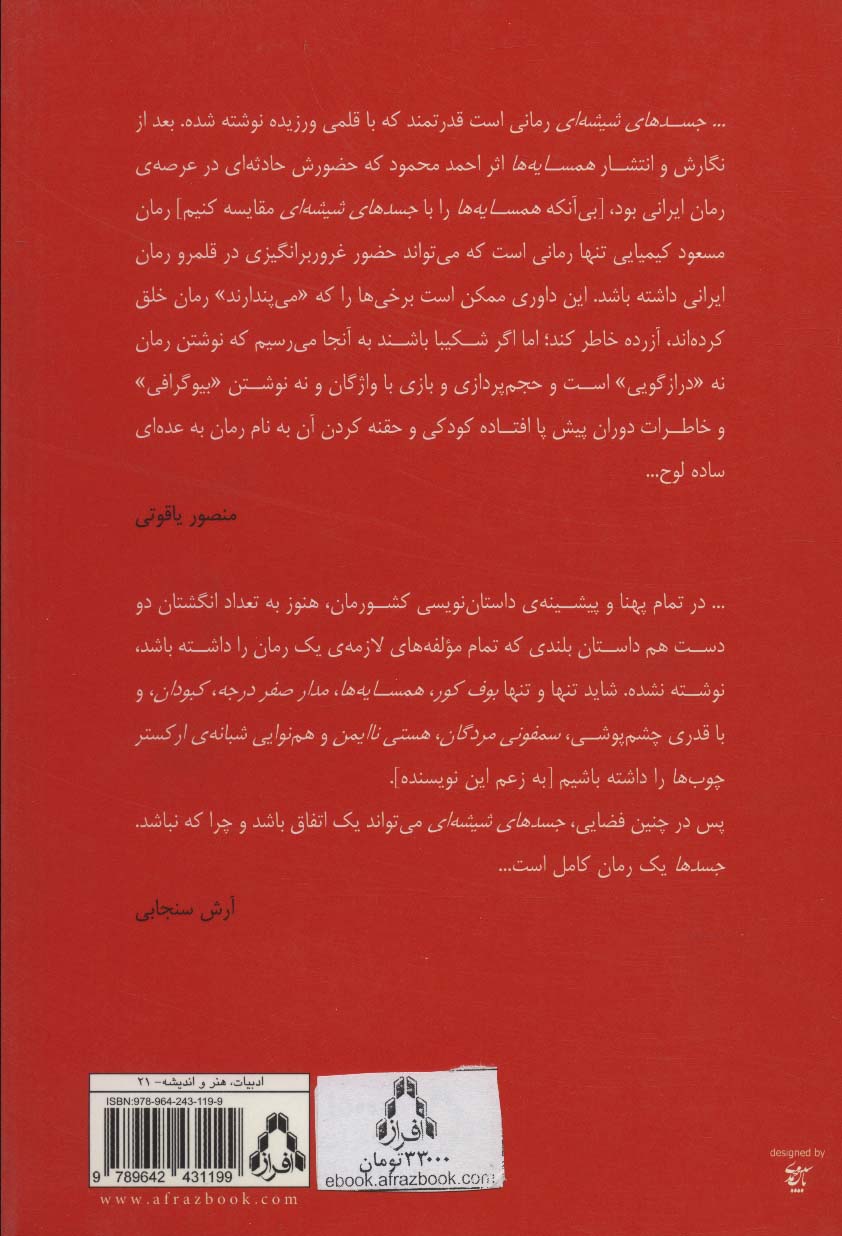 ... جسدهای شیشه‌ای رمانی است قدرتمند که با قلمی ورزیده نوشته شده. بعد از
نگارش و انتشار همسایه‌ها اثر احمد محمود که حضورش حادثه‌ای در عرصه‌ی
رمان ایرانی بود، [بی‌آنکه همسایه‌ها را با جسدهای شیشه‌ای مقایسه کنیم] رمان
مسعود کیمیایی تنها رمانی است که می‌تواند حضور غروربرانگیزی در قلمرو رمان
ایرانی داشته باشد. این داوری ممکن است برخی‌ها را که «می‌پندارند» رمان خلق
کرده‌اند، آزرده خاطر کند؛ اما اگر شکیبا باشند به آنجا می‌رسیم که نوشتن رمان
نه «درازگویی» است و حجم‌پردازی و بازی با واژگان و نه نوشتن «بیوگرافی»
و خاطرات دوران پیش پا افتاده کودکی و حقنه کردن آن به نام رمان به عده‌ای
ساده لوح...
منصور یاقوتی
... در تمام پهنا و پیشینه‌ی داستان‌نویسی کشورمان، هنوز به تعداد انگشتان دو
دست هم داستان بلندی که تمام مؤلفه‌های لازمه‌ی یک رمان را داشته باشد،
نوشته نشده. شاید تنها و تنها بوف کور، همسایه‌ها، مدار صفر درجه، کبودان، و
با قدری چشم‌پوشی، سمفونی مردگان، هستی ناایمن و هم‌نوایی شبانه‌ی ارکستر
چوب‌ها را داشته باشیم [به زعم این نویسنده].
پس در چنین فضایی، جسدهای شیشه‌ای می‌تواند یک اتفاق باشد و چرا که نباشد.
جسدها یک رمان کامل است...
آرش سنجابی
ادبیات، هنر و اندیشه- ۲۱
ISBN:978-964-243-119-9
افراز
9 789642 431199
www.afrazbook.com
افراز
۳۳۰۰۰تومان
ebook.afrazbook.com
designed by